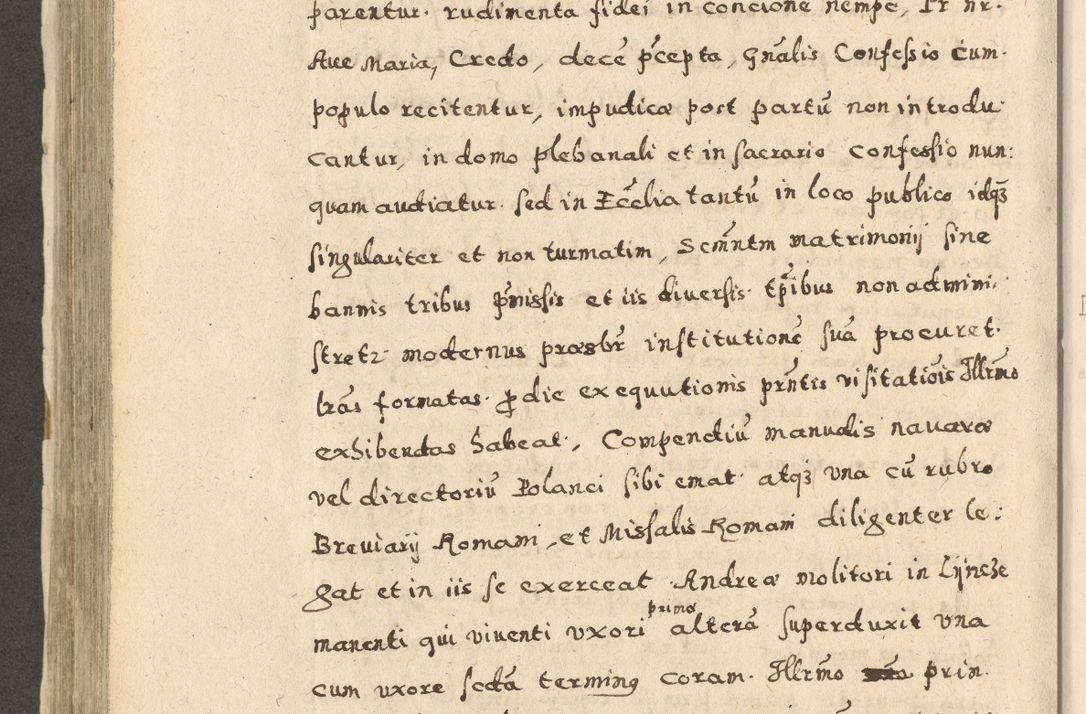 parentur. rudimenta fidei in concione nempe, Pr nr.
Ave Maria, Credo, decē p̄cepta, Gn̄alis Confessio cum
populo recitentur, impudicæ post partū non introdu
cantur, in domo plebanali et in sacrario confessio nun:
quam audiatur. sed in Ecc̄lia tantū in loco publico idqȝ
singulariter et non turmatim, Scm̄ntm matrimonij sine
bannis tribus p̄missis et iis diversis tp̄ibus non admini:
stretr modernus præsbr̄ institutionē suā procuret
lr̄as formatas. ꝓ die exequutionis prn̄tis visitatiōis Illrm̄o
exhibendas habeat, Compendiū manualis navaræ
vel directoriū Polanci sibi emat atqȝ una cū rubro
Breviarij Romani, et Missalis Romani diligenter le:
gat et in iis se exerceat. Andreæ molitori in Lijncze
manenti qui viventi uxori prima alterā superduxit una
cum uxore scdā terminꝰ coram Illrm̄o prin